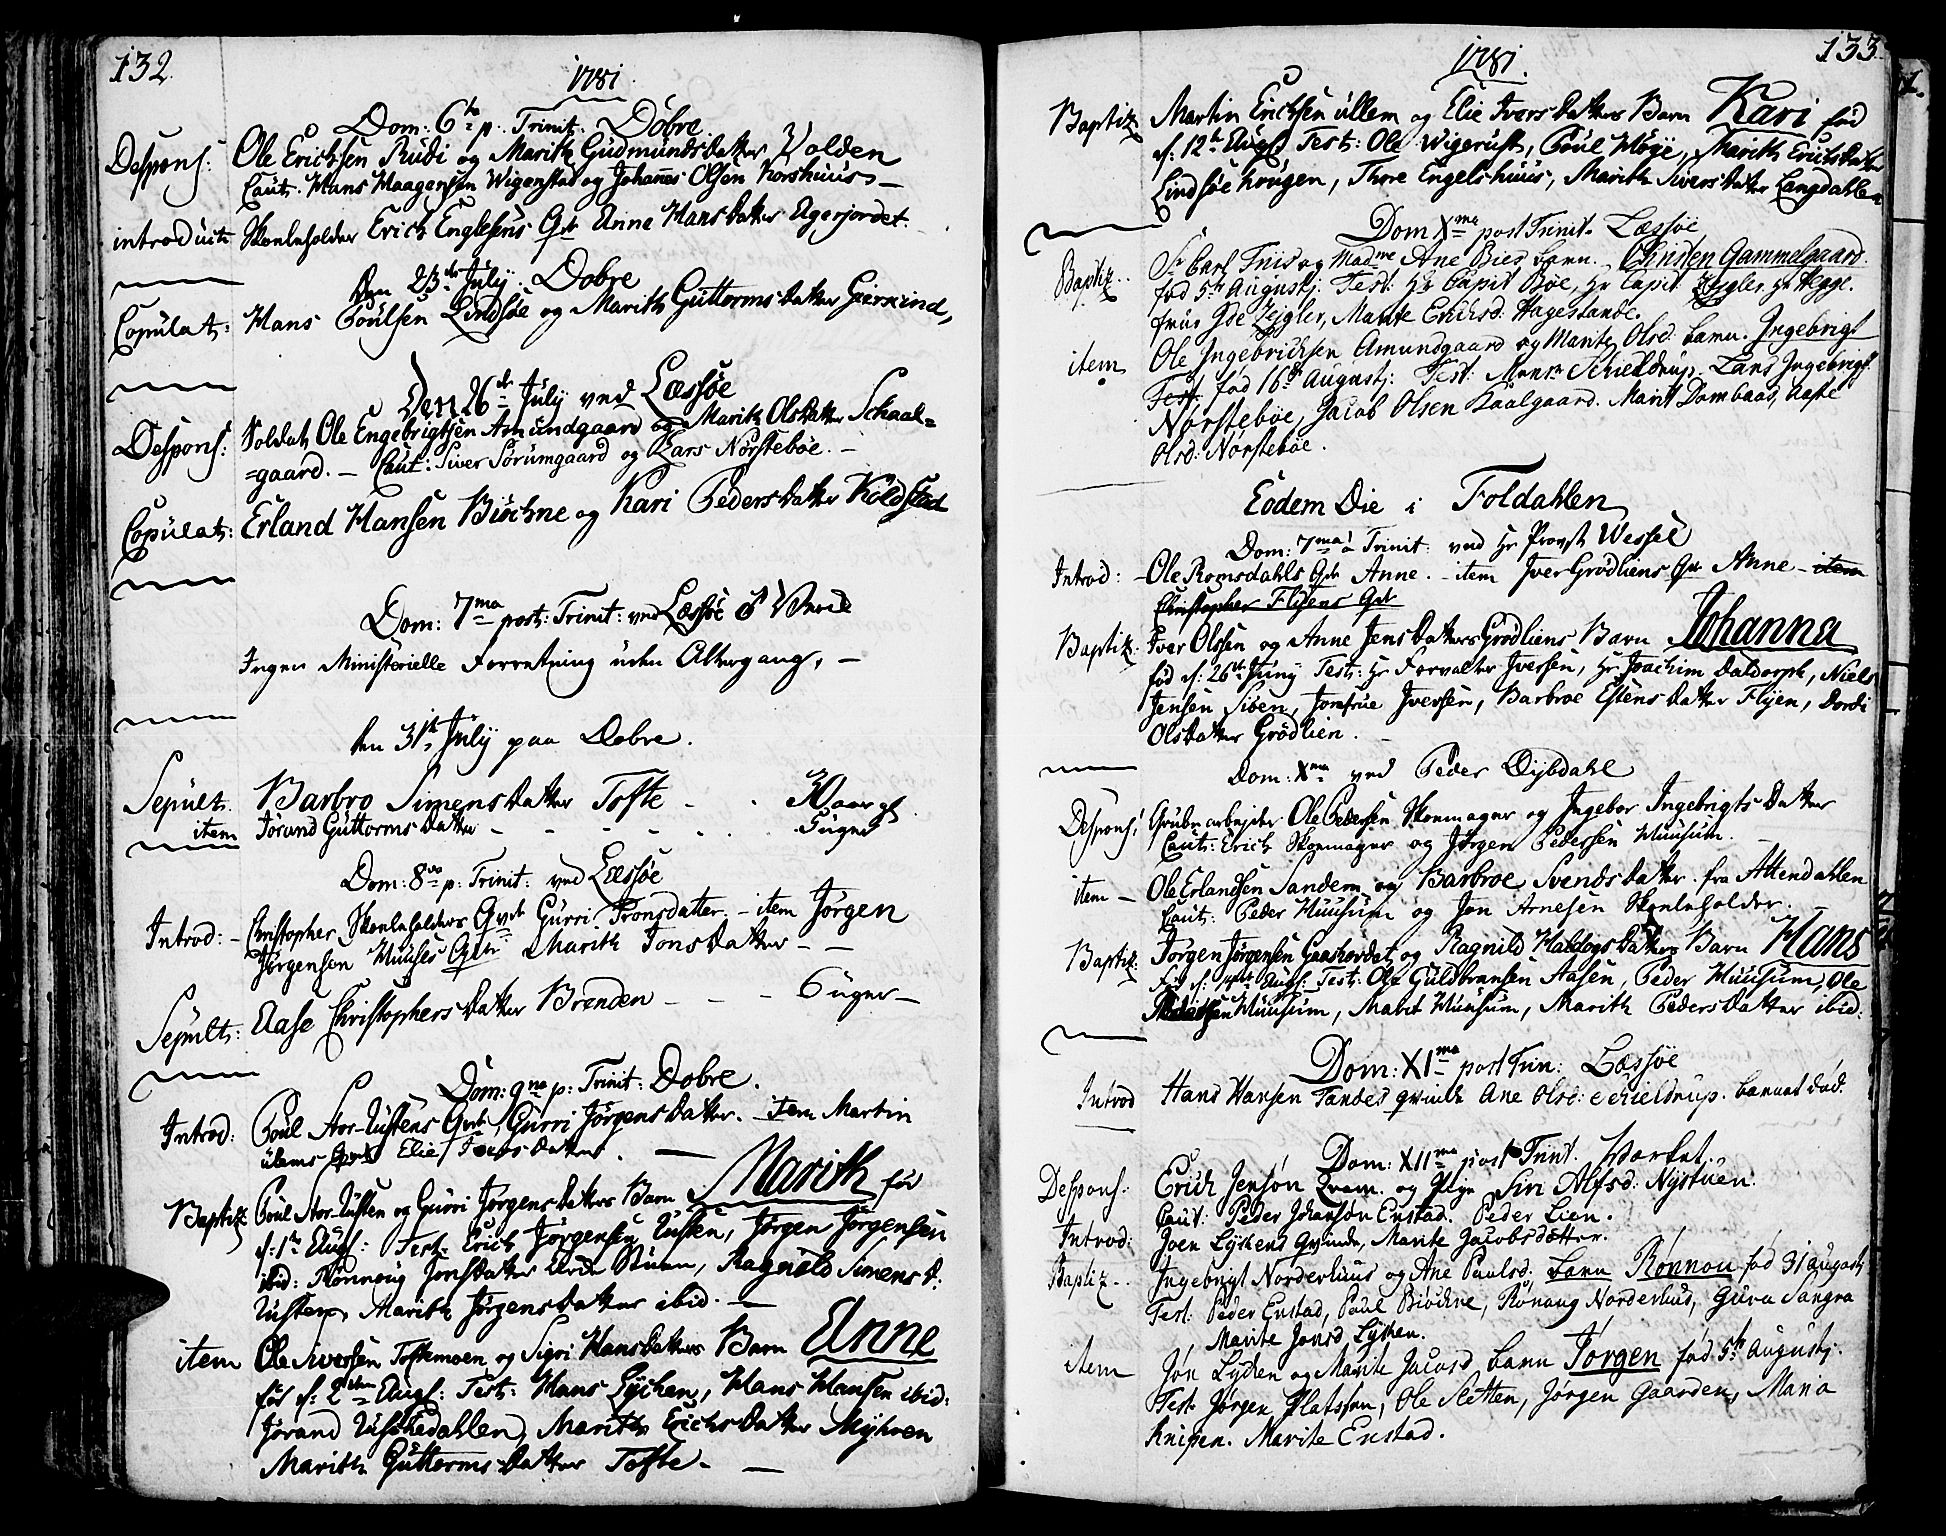 132.
1781.
Dom: 6te p. Trinit: Dobre.
Despons: Ole Erichsen Rudi og Marith Gudmundsdatter Volden
Caut: Hans Haagensen Wigenstad og Johanes Olsen Korshuus –
introducit Skoeleholder Erich Englesens Qde Anne Hansdatter Agerjordet.
Den 23de July. Dobre
Copulat: Hans Poulsen Lindsøe og Marith Guttormsdatter Gierkind,
Den 26de July ved Læssøe
Despons: Soldat Ole Engebrigtsen Amundgaard og Marith Olsdatter Schaal=
=gaard. – Caut: Siver Sørumgaard og Lars Norstebøe. –
Copulat: Erland Hansen Biøchne og Kari Pedersdatter Koldstad
Dom: 7ma post: Trinit: ved Læssøe
Ingen Ministerielle Forretning uden Altergang, –
den 31te July paa Dobre.
Sepult. Barbro Simensdatter Tofte - - 30 aar gl.
item Jorand Guttormsdatter - - - - - - 5 uger
Dom: 8va p: Trinit: ved Læssøe
Introd: – Christopher Skoeleholders Qvde Gurri Tronsdatter. – item Jørgen
Jørgensen Huuses Qde Marith Jonsdatter – –
Sepult: Aase Christophersdatter Brenden - - - 6 uger –
Dom: 9na p: Trinit: Dobre.
Introd: Poul Stor-Usteens Qvde, Gurri Jørgensdatter. – item Martin
Ulems Elie Iversdatter. –
Baptiz. Poul Stor-Usteen og Gurri Jørgensdatters Barn Marith fød
d: 1te Aug: Test: Erich Jørgensen Usteen, Jørgen Jørgensen
ibid: Rønnoug Jonsdatter Stuen, Ragnild Simensd:
Usteen, Marith Jørgensdatter ibid. –
item Ole Siversen Toftemoen og Sigri Hansdatters Barn Anne
fød d: 2den Aug: Test: Hans Lychen, Hans Hansen ibid:
Jorand Uschedahlen, Marith Erichsdatter Myhren
Marith Guttormsdatter Tofte. –
133
1781.
Baptiz Martin Erichsen Ullem og Elie Iversdatters Barn Kari fød
d: 12te Augs Test: Ole Wigerust, Poul Høye, Marith Erichsdatter
Lindsøe Krogen, Thore Engelshuus, Marith Siversdatter Langdahlen
Dom Xma post Trinit. Læssøe
Baptiz.. Sr Carl Friis og Madme Ane Bies barn. Christen Gammelgaard.
fød 5te Augustj. Test: Hr Capit Bøe, Hr Capit. Zeigler, Hr Hegge.
frue Gde Zeigler, Marite Erichsd: Hagestande.
item Ole Ingebrichsen Amundgaard og Marite Olsd: barn. Ingebrigt
Test: fød 16de Augustj: Test: Monsr Schieldrup. Lars Ingebrigts
Norstebøe, Jacob Olsen Kaalgaard. Marit Dombaas, Aaste
Olsd: Norstebøe.
Eodem Die i Foldahlen
Dom: 7ma a Trinit: ved Hr Provst Wessel
Introd: – Ole Romsdahls Qde Anne. – item Iver Grødliens Qde Anne – item
Christopher Flyens Qde
Baptiz. Iver Olssen og Anne Jensdatters Grødliens Barn Johanna
fød d: 26de Juny Test: Hr Forvalter Iversen, Hr Joachim Daldorph, Niels
Jensen Siøen, Jomfrue Iversen, Barbroe Estensdatter Flyen, Dordi
Olsdatter Grødlien.
Dom: Xma ved Peder Dybdahl
Despons: Grubearbejder Ole Pedersen Skoemager og Ingebor Ingebrigtsdatter
Caut: Erich Skoemager og Jørgen Pedersen Huusum.
item – Ole Erlandsen Sandem og Barbroe Svendsdatter fra Attendahlen
Caut: Peder Huusum og Jon Arnesen Skoeleholder.
Baptiz. Jørgen Jørgensen Gaashordet og Ragnild Haldogsdatters Barn Hans
fød d: 14de Aug: Test: Ole Guldbransen Aasen, Peder Huusum, Ole
Huusum, Marit Huusum, Marith Pedersdatter ibid:
Dom: XIma post Trin: Læssøe
Introd Hans Hansen Tandes qvinde Ane Olsd: Schieldrup. barnet død.
Dom: XIIma post Trinit.
Despons: Erich Jensøn og Siri Alfsd: Nystuen.
Caut: Peder Johansøn Enstad. Peder Lien.
Introd: Joen Lyskens Qvinde, Marite Jacobsdotter.
Baptiz.. Ingebrigt Norderhuus og Ane Paulsd: barn Rønnou fød 31 augusti
Test: Peder Enstad, Paul Biøchne, Rønaug Norderhus, Guru Sangra
Marite Jonsd Lysken.
item Jøn Lysken og Marite Jacobsd barn Jørgen fød 5te Augustj.
Test. Jørgen Platssen, Ole Sletten, Jørgen Gaarden, Maria
Knipen. Marite Enstad.